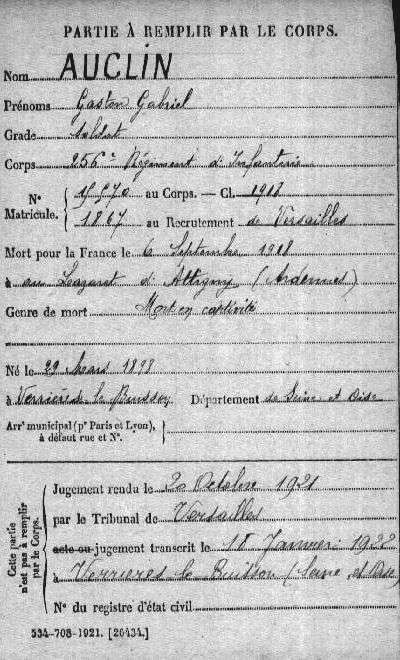 PARTIE À REMPLIR PAR LE CORPS.
Nom AUCLIN
Prénoms Gaston Gabriel
Grade soldat
Corps 256e Régiment d'Infanterie
N° Matricule. { au Corps. — Cl. 1918
1867 au Recrutement de Versailles
Mort pour la France le 6 Septembre 1918
à au Lazaret d'Attigny (Ardennes)
Genre de mort Mort en captivité
Né le Mars
à Verrières le Buisson Département de Seine et Oise
Arr' municipal (p' Paris et Lyon), à défaut rue et N°.
Cette partie n'est pas à remplir par le Corps.
Jugement rendu le 20 Octobre 1921
par le Tribunal de Versailles
acte ou jugement transcrit le 18 Janvier 1922
à Verrières le Buisson (Seine et Oise)
N° du registre d'état civil
534-708-1921. [26434.]